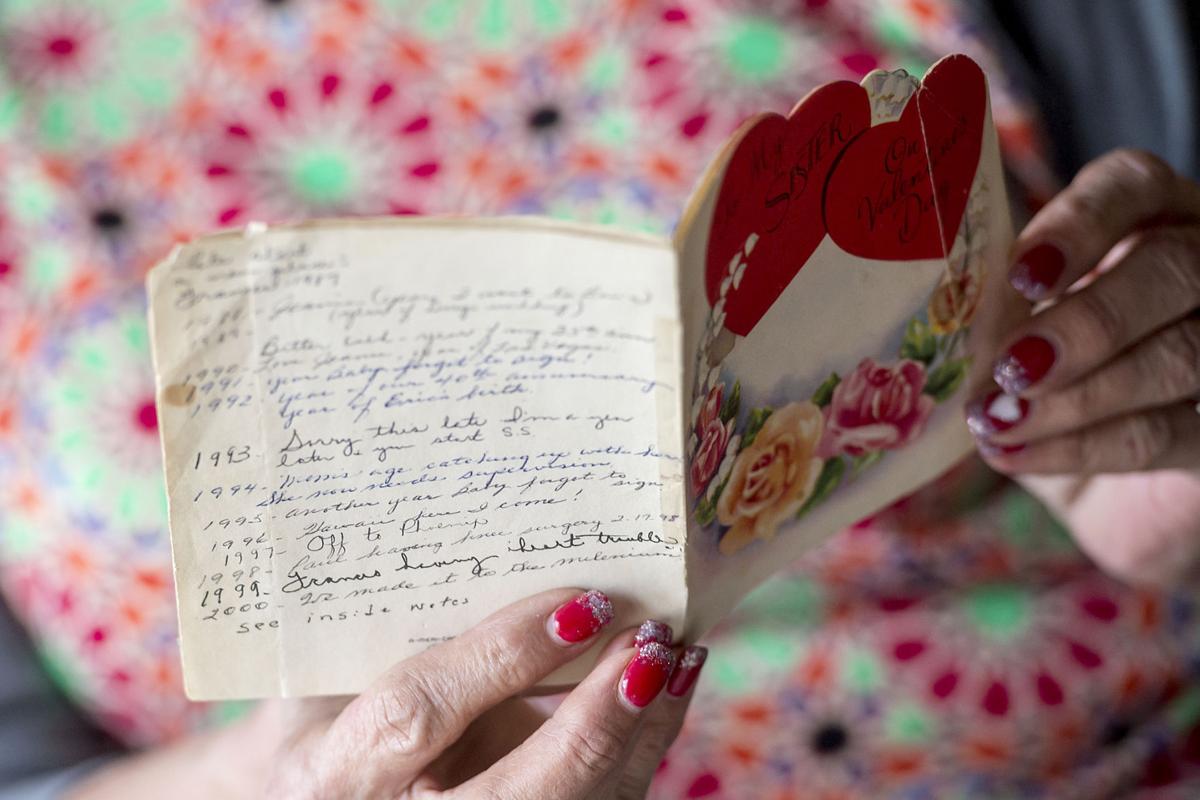 1988 - Jeanie (year I went to
1989 -
Better late - year of my 25th anniv
1990 - Love Jeanie. year of Las Vegas.
1991 - year Baby forgot to sign!
1992 year of our 40th anniversary
year of Eric's birth.
1993 - Sorry this late I'm a year
later so you start S.S.
1994 - Mom's age catching up with her
She now needs supervision
1995 - another year Baby forgot to sign
1996 - Hawaii here I come!
1997 - Off to Phoenix
1998 - Paul having knee surgery 2-17-98
1999 - Frances having heart trouble
2000 - We made it to the milenium
see inside notes
My
SISTER
On
Valentine's
Day